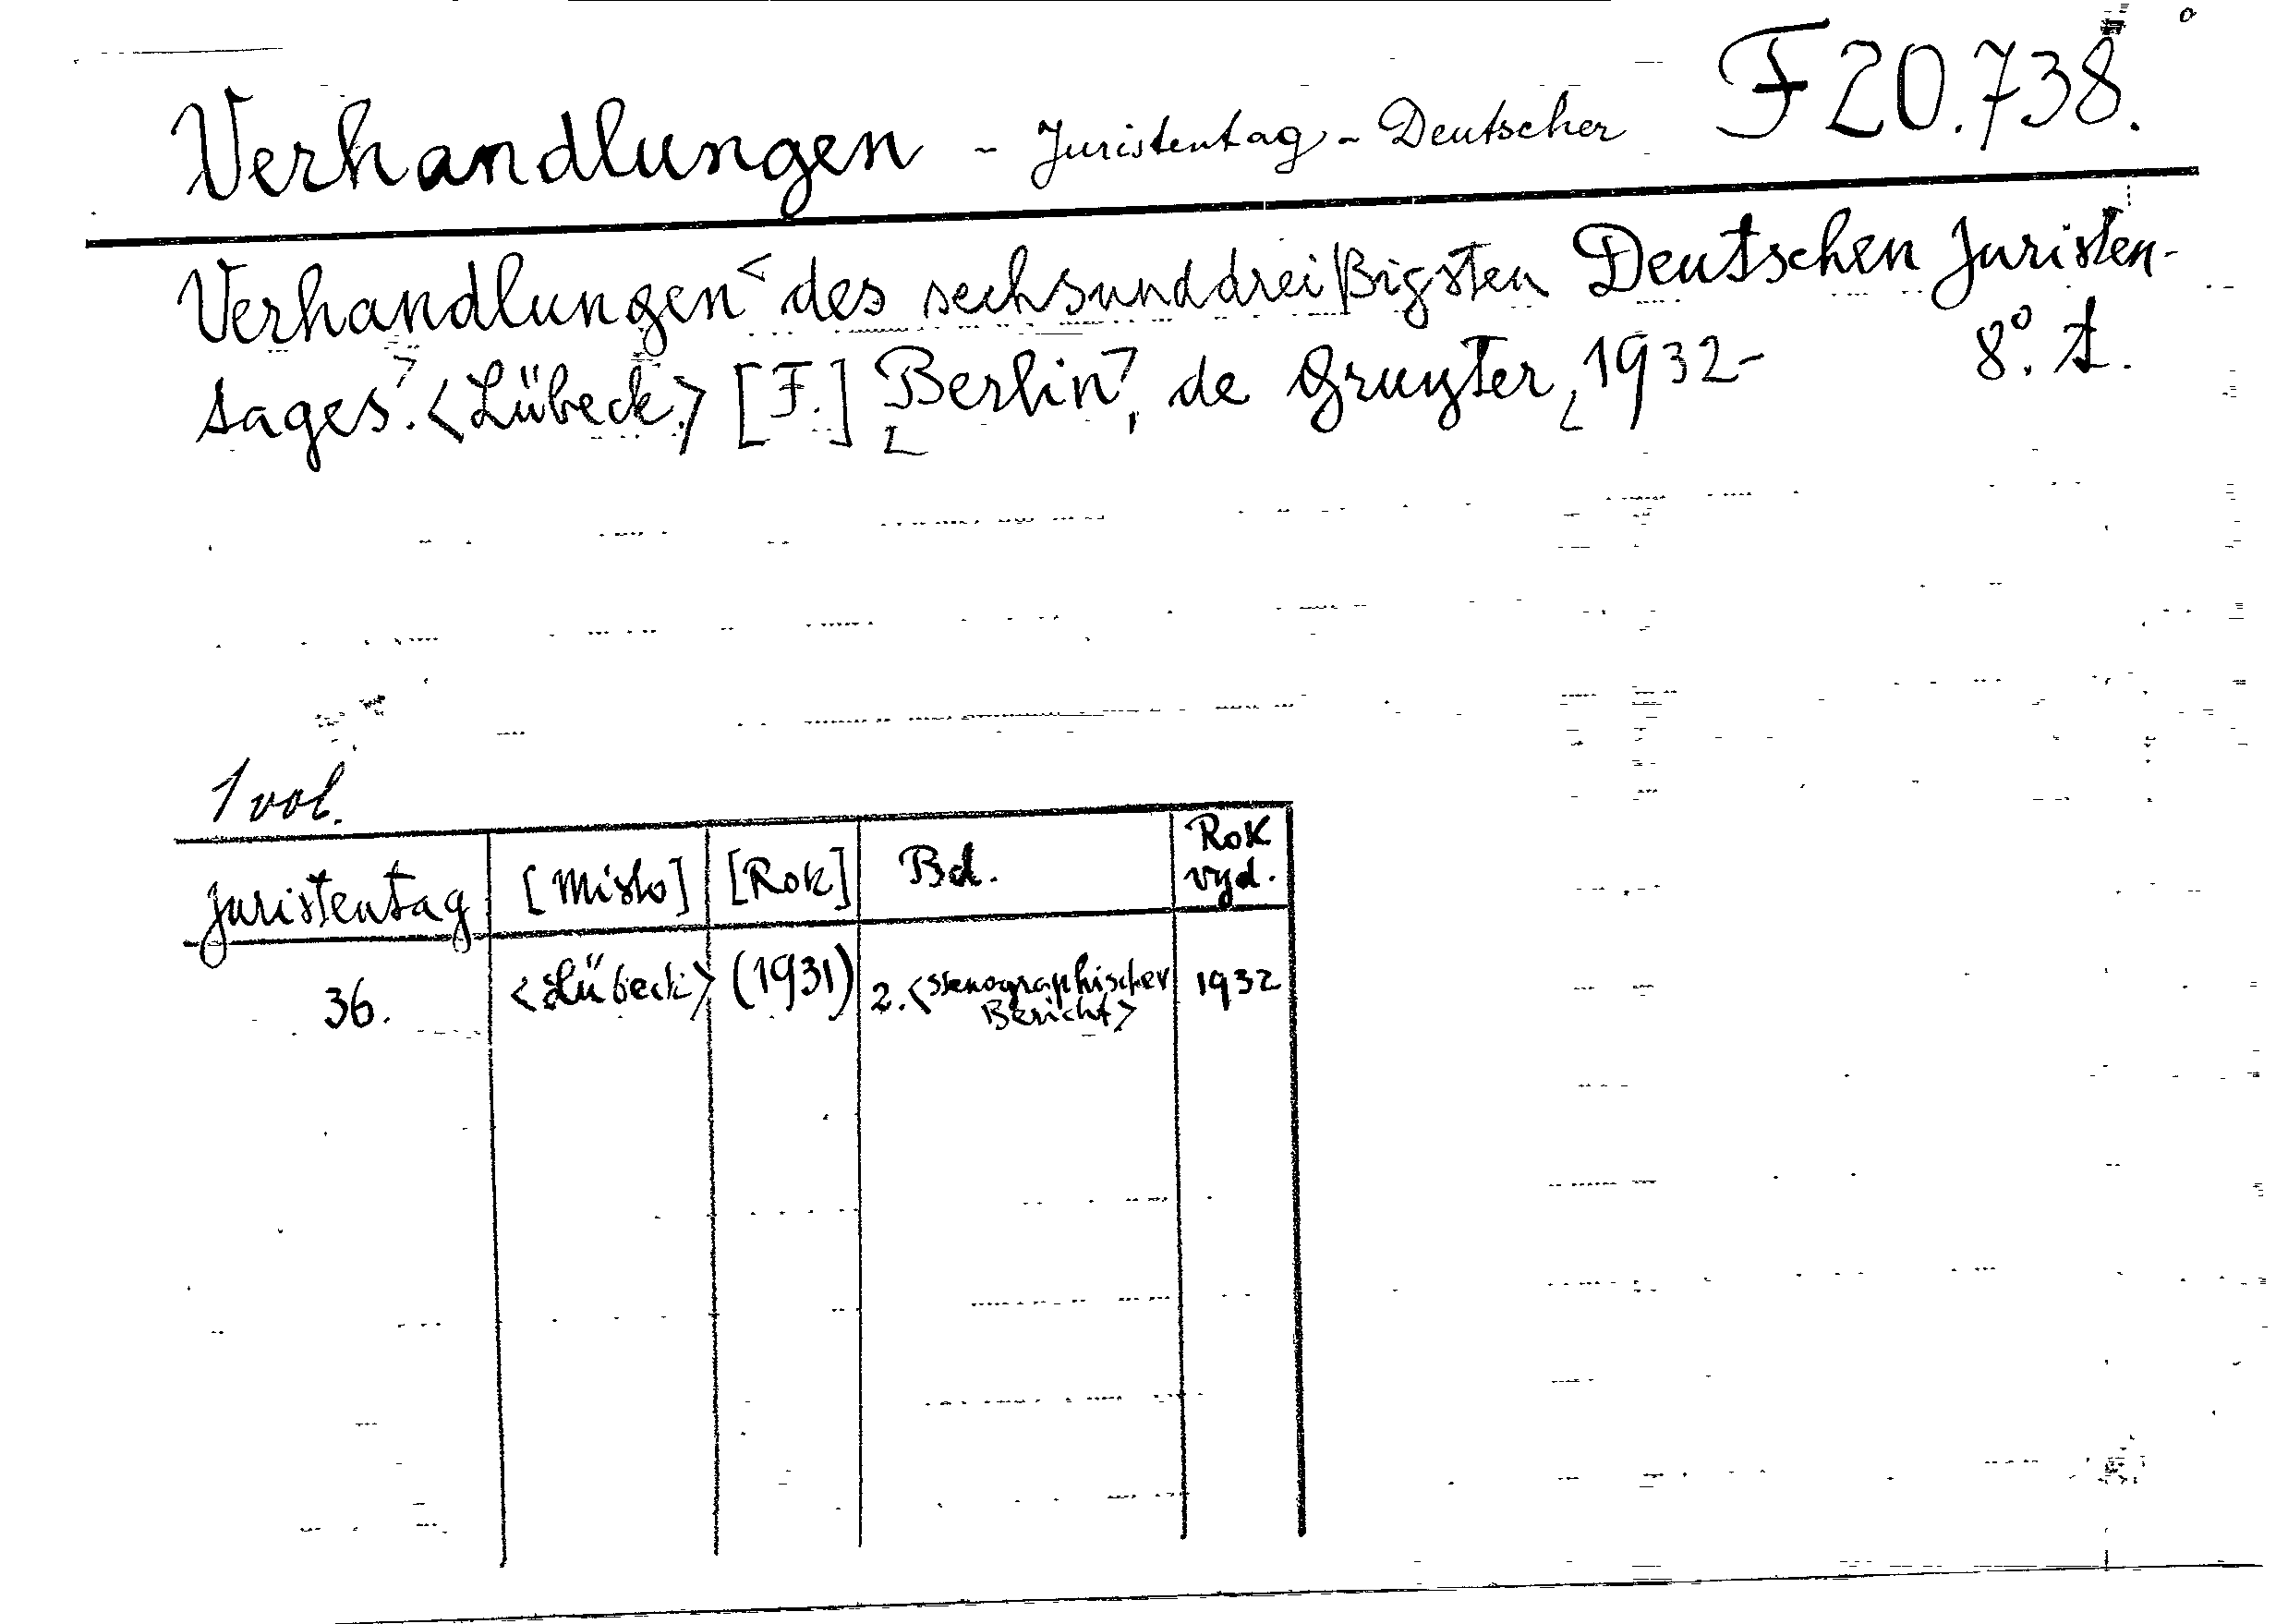 Verhandlungen - Juristentag - Deutscher F 20.738.
Verhandlungen < des sechsunddreißigsten Deutschen Juristen-
tages.> <Lübeck.> [F.] [Berlin], de Gruyter, 1932- 8°.
1 vol.
Juristentag [Místo] [Rok] Bd. Rok vyd.
36. <Lübeck> (1931) 2. <Stenographischer Bericht> 1932